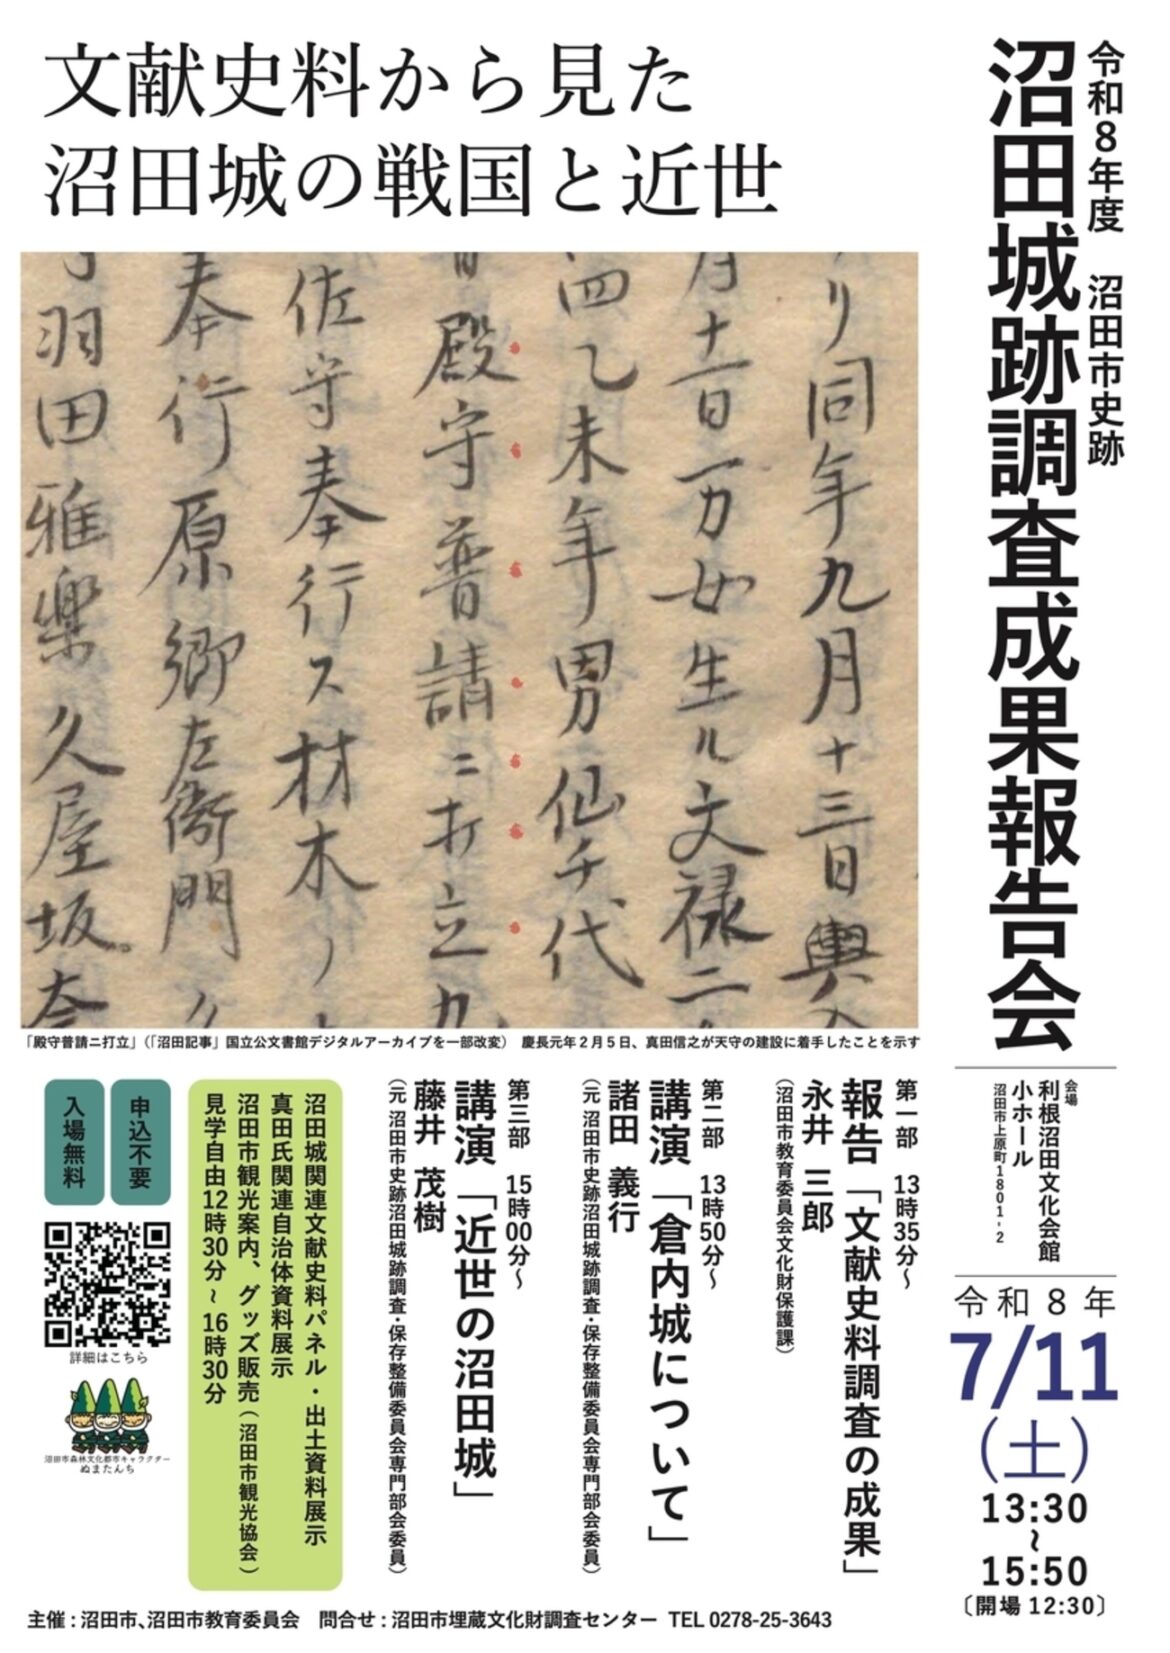 文献史料から見た
沼田城の戦国と近世
令和8年度　沼田市史跡
沼田城跡調査成果報告会
り同年九月十三日輿入
月十一日一万女生ル文禄二
四乙未年男仙千代
殿守普請ニ打立九
佐守奉行ス材木ノ
奉行原郷左衛門久
羽田雅楽久屋坂奈
「殿守普請ニ打立」（「沼田記事」国立公文書館デジタルアーカイブを一部改変）　慶長元年２月５日、真田信之が天守の建設に着手したことを示す
会場
利根沼田文化会館
小ホール
沼田市上原町1801-2
令和８年
7/11
（土）
13:30
～
15:50
〔開場 12:30〕
第一部　13時35分～
報告「文献史料調査の成果」
永井　三郎
（沼田市教育委員会文化財保護課）
第二部　13時50分～
講演「倉内城について」
諸田　義行
（元 沼田市史跡沼田城跡調査・保存整備委員会専門部会委員）
第三部　15時00分～
講演「近世の沼田城」
藤井　茂樹
（元 沼田市史跡沼田城跡調査・保存整備委員会専門部会委員）
沼田城関連文献史料パネル・出土資料展示
真田氏関連自治体資料展示
沼田市観光案内、グッズ販売（沼田市観光協会）
見学自由12時30分～16時30分
申込不要
入場無料
詳細はこちら
沼田市森林文化都市キャラクター
ぬまたんち
主催：沼田市、沼田市教育委員会　問合せ：沼田市埋蔵文化財調査センター　TEL 0278-25-3643